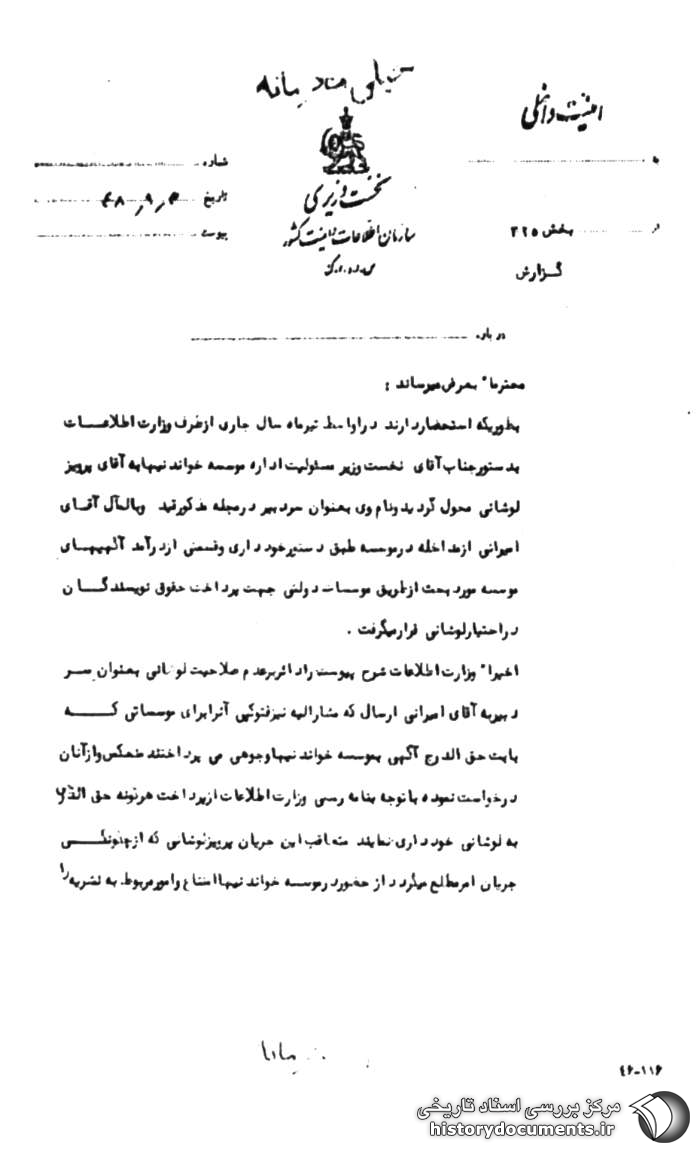 خیلی محرمانه
امنیت داخلی
نخست وزیری
سازمان اطلاعات و امنیت کشور
به
از بخش ۳۲۵
گزارش
شماره
تاریخ ۴۸٫۹٫۳
پیوست
درباره
محترما" بعرض میرساند :
بطوریکه استحضاردارند دراواسط تیرماه سال جاری ازطرف وزارت اطلاعــات
بدستورجناب آقای نخست وزیر مسئولیت اداره موسسه خواندنیهابه آقای پرویز
لوشانی محول گردیدونام وی بعنوان سردبیر درمجله مذکورقید وبالمآل آقــای
امیرانی ازمداخله درموسسه طبق دستورخودداری وقسمتی ازدرآمد آگهیهــای
موسسه مورد بحث ازطریق موسسات دولتی جهت پرداخت حقوق نویسندگــان
دراختیارلوشانی قرارمیگرفت .
اخیرا" وزارت اطلاعات شرح پیوست رادائربرعدم صلاحیت لوشانی بعنوان ســر
دبیربه آقای امیرانی ارسال که مشارالیه نیزفتوکپی آنرابرای موسساتی کــه
بابت حق الدرج آگهی بموسسه خواندنیهاوجوهی می پرداختند منعکس وازآنان
درخواست نموده باتوجه بنامه رسمی وزارت اطلاعات ازپرداخت هرگونه حق الدرج
به لوشانی خودداری نمایند متعاقب این جریان پرویزلوشانی که ازچگونگــی
جریان امرمطلع میگردد از حضوردرموسسه خواندنیهاامتناع وامورمربوط به نشریه را
۴۶-۱۱۶
مرکز بررسی اسناد تاریخی
historydocuments.ir